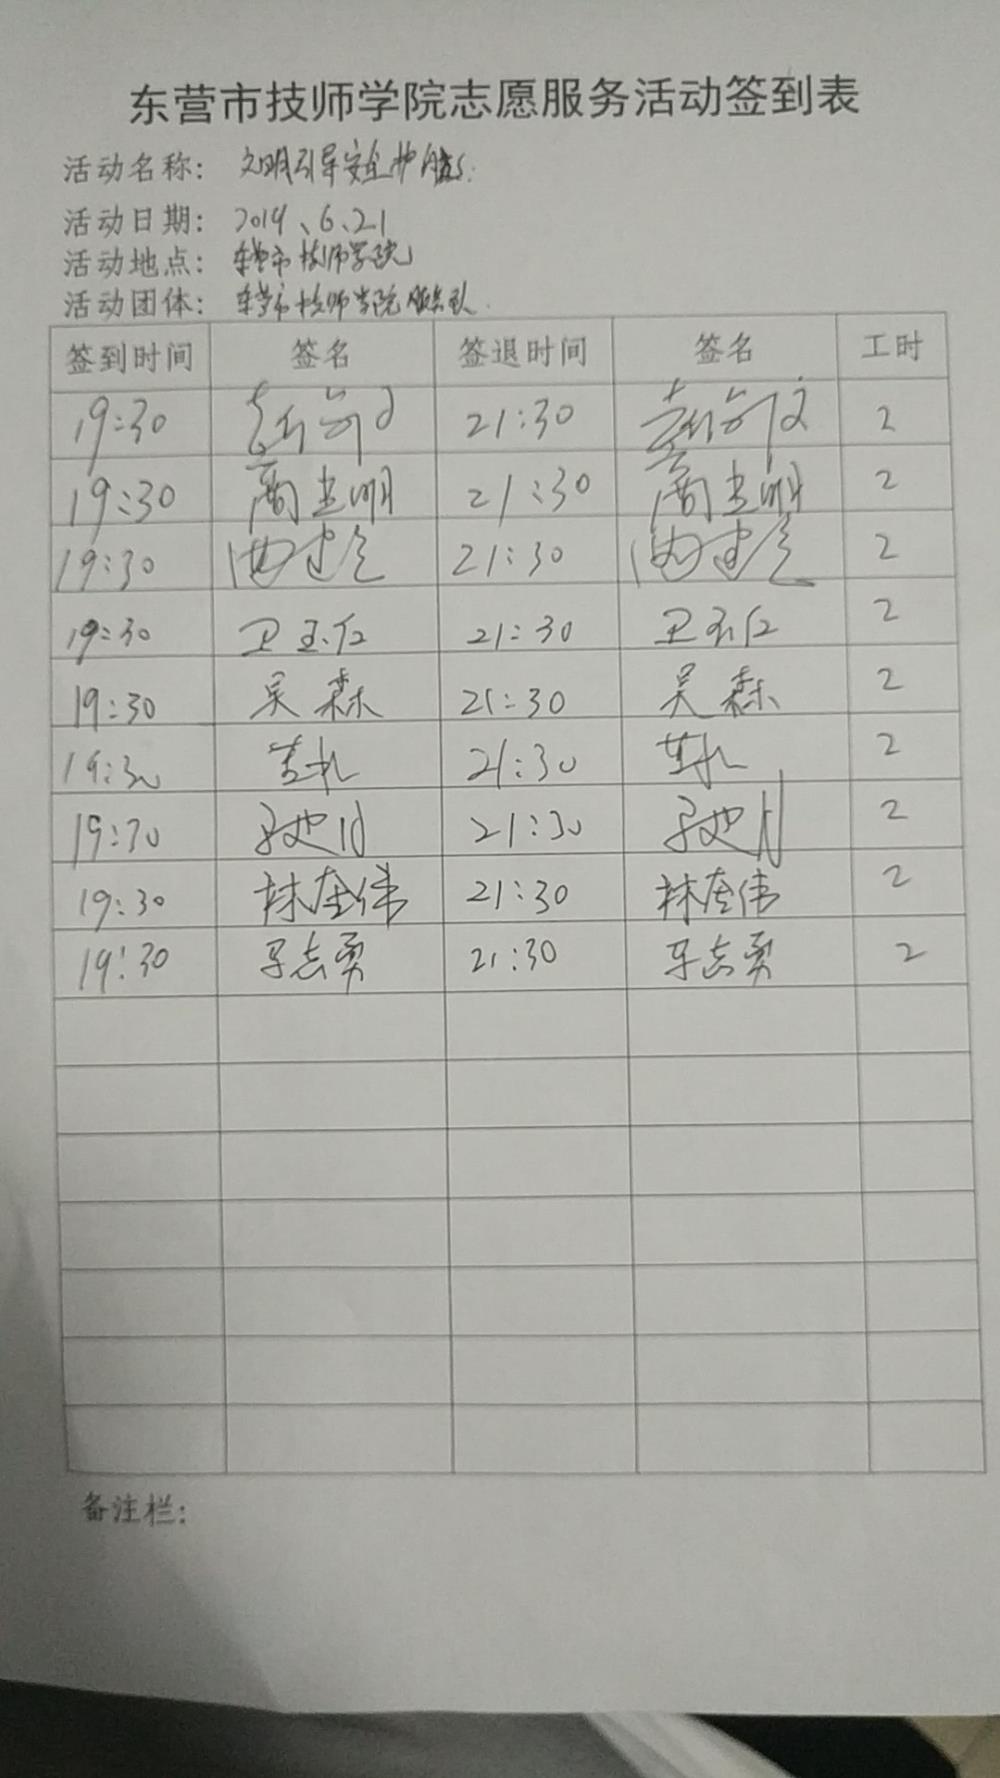 东营市技师学院志愿服务活动签到表
活动名称: 文明引导安全护航
活动日期: 2019、6、21
活动地点: 东营市技师学院
活动团体: 东营市技师学院服务队
签到时间 签名 签退时间 签名 工时
19:30 21:30 2
19:30 商光明 21:30 商光明 2
19:30 曲建 21:30 曲建 2
19:30 卫玉仁 21:30 卫玉仁 2
19:30 吴森 21:30 吴森 2
19:30 21:30 2
19:30 21:30 2
19:30 林奎伟 21:30 林奎伟 2
19:30 马志勇 21:30 马志勇 2
备注栏: